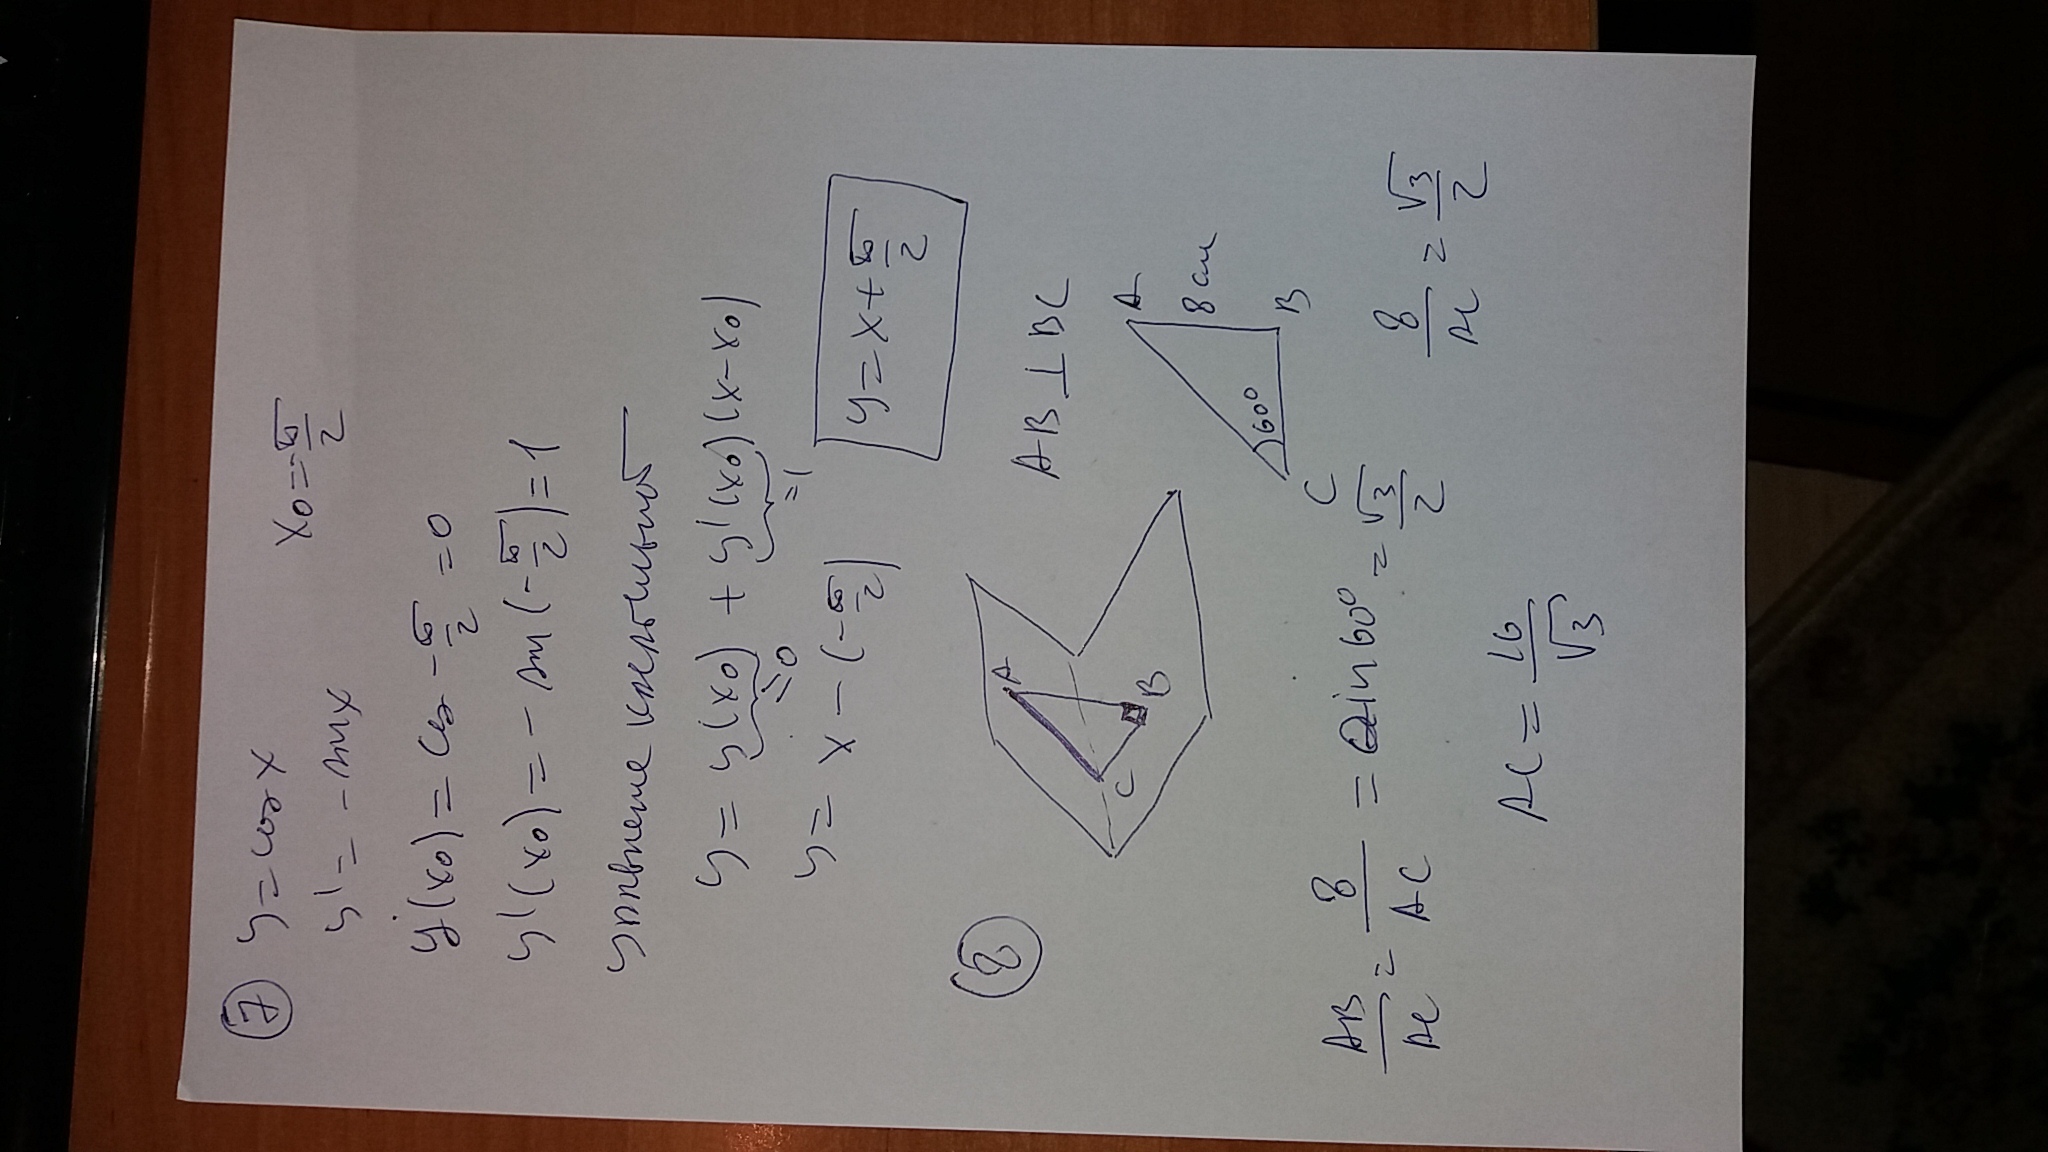 7 y = cos x    x₀ = -π/2
y' = -sin x
y(x₀) = cos -π/2 = 0
y'(x₀) = - sin(-π/2) = 1
уравнение касательной
y = y(x₀) + y'(x₀)(x-x₀)
=0 =1
y = x - (-π/2)
y = x + π/2
8
AB ⊥ BC
A
C
B
A
8 см
60°
C
B
AB/AC = 8/AC = sin 60° = √3/2    8/AC = √3/2
AC = 16/√3